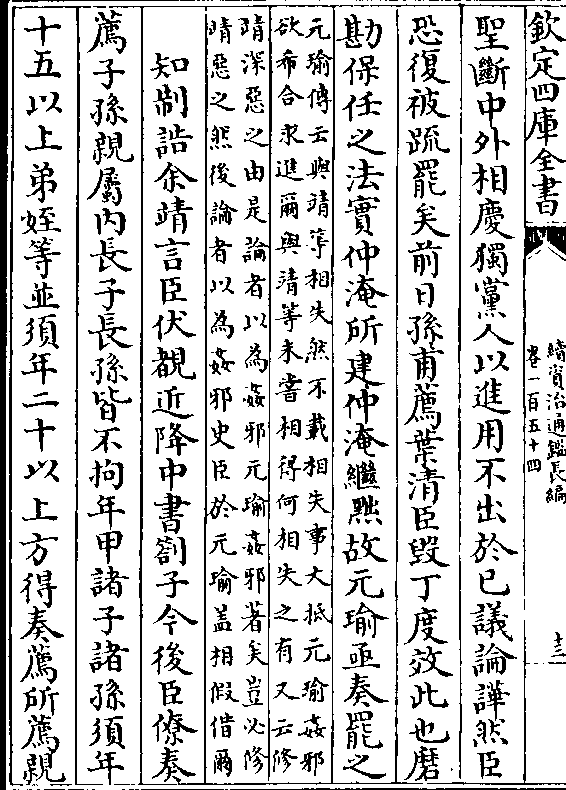 欽定四庫全書
續資治通鑑長編
卷一百五十四
十三
聖斷中外相慶獨黨人以進用不出於已議論譁然臣
恐復被疏罷矣前日孫甫薦葉清臣毀丁度效此也磨
勘保任之法實仲淹所建仲淹繼黜故元瑜亟奏罷之
元瑜傳云與靖等相失然不載相失事大抵元瑜姦邪
欲希合求進爾與靖等未嘗相得何相失之有又云修
靖深惡之由是論者以為姦邪元瑜姦邪著矣豈必修
靖惡之然後論者以為姦邪史臣於元瑜盖相假借爾
知制誥余靖言臣伏覩近降中書劄子今後臣僚奏
薦子孫親屬内長子長孫皆不拘年甲諸子諸孫須年
十五以上弟姪等並須年二十以上方得奏薦所薦親